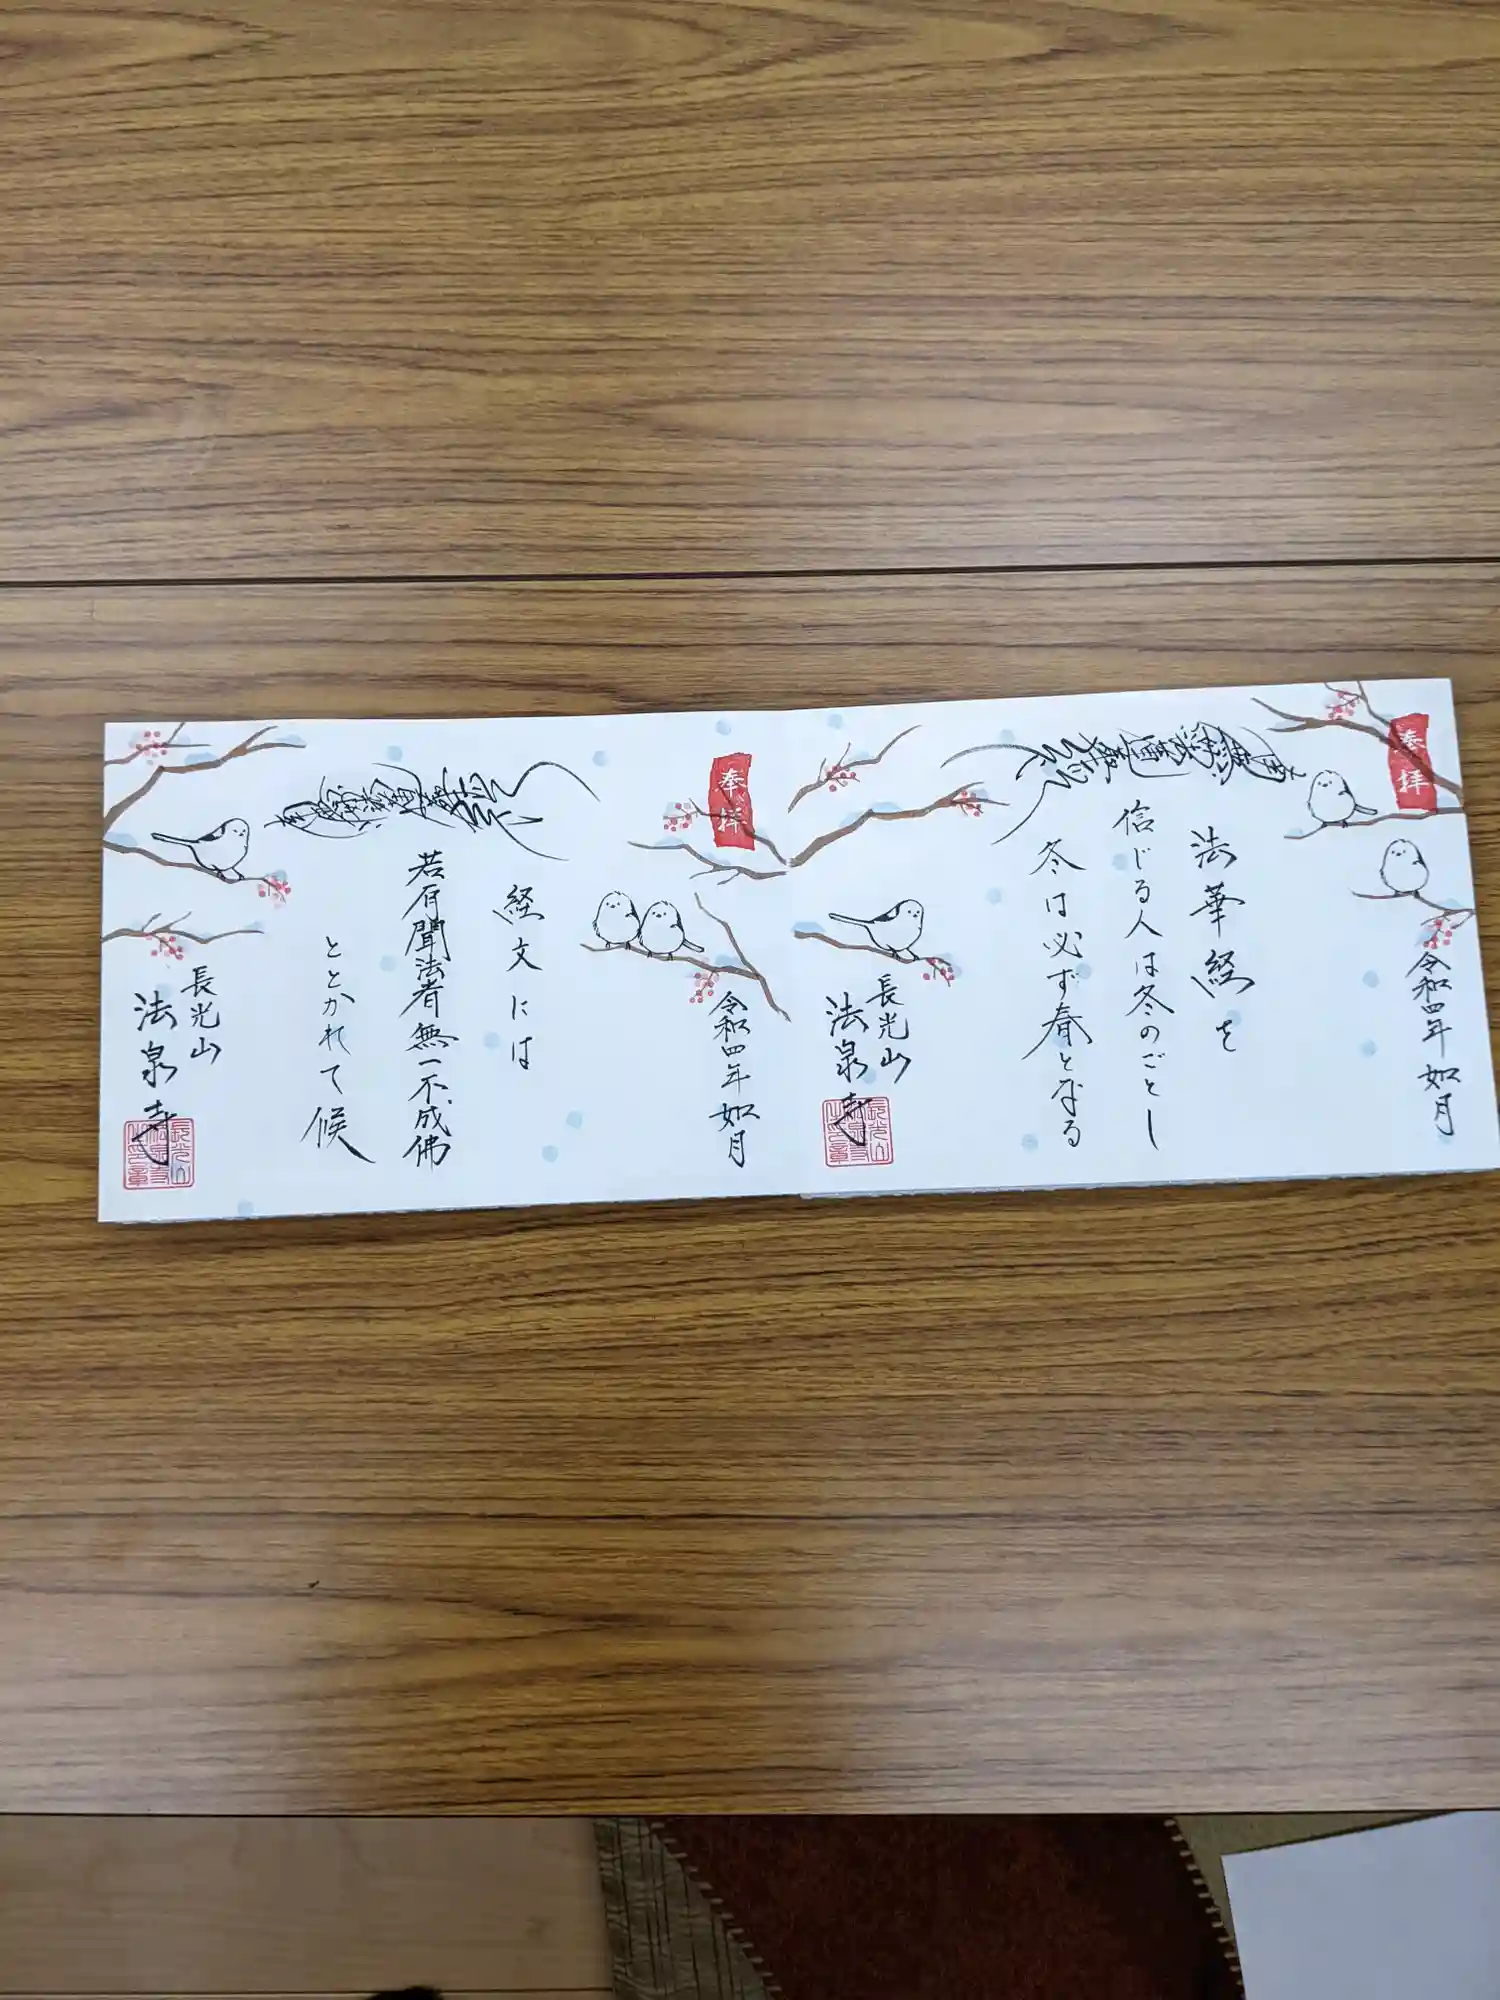 奉拝
令和四年如月
法華経を
信じる人は冬のごとし
冬は必ず春となる
長光山
法泉寺
奉拝
令和四年如月
経文には
若有聞法者無一不成佛
ととかれて候
長光山
法泉寺